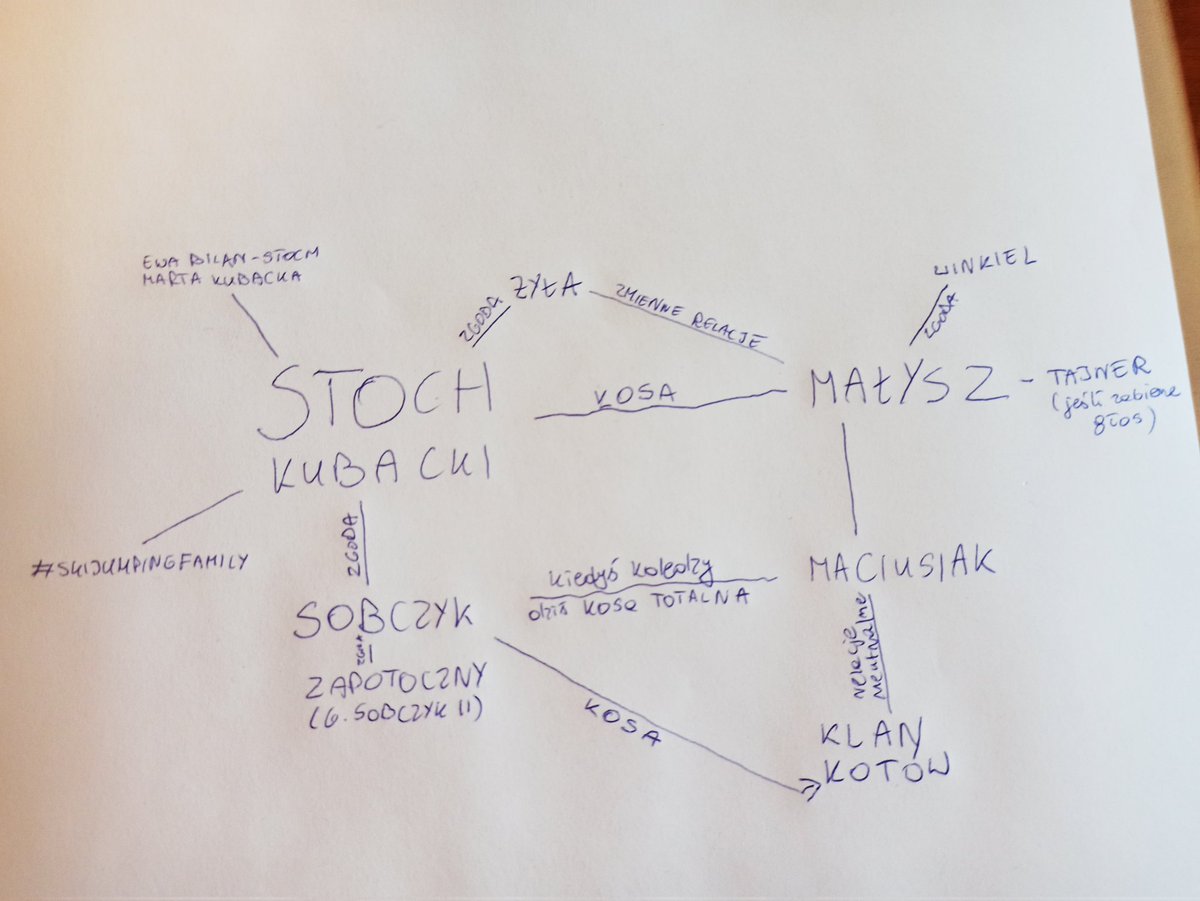 EWA BILAN-STOCH
MARTA KUBACKA
ŻYŁA
ZGODA
ZMIENNE RELACJE
WINKIEL
ZGODA
STOCH
KOSA
MAŁYSZ - TAJNER
(jeśli zabierze
głos)
KUBACKI
ZGODA
#SKIJUMPINGFAMILY
SOBCZYK
kiedyś koledzy
dziś KOSA TOTALNA
MACIUSIAK
ZGODA
ZAPOTOCZNY
(G. SOBCZYK II)
KOSA
relacje
neutralne
KLAN
KOTÓW